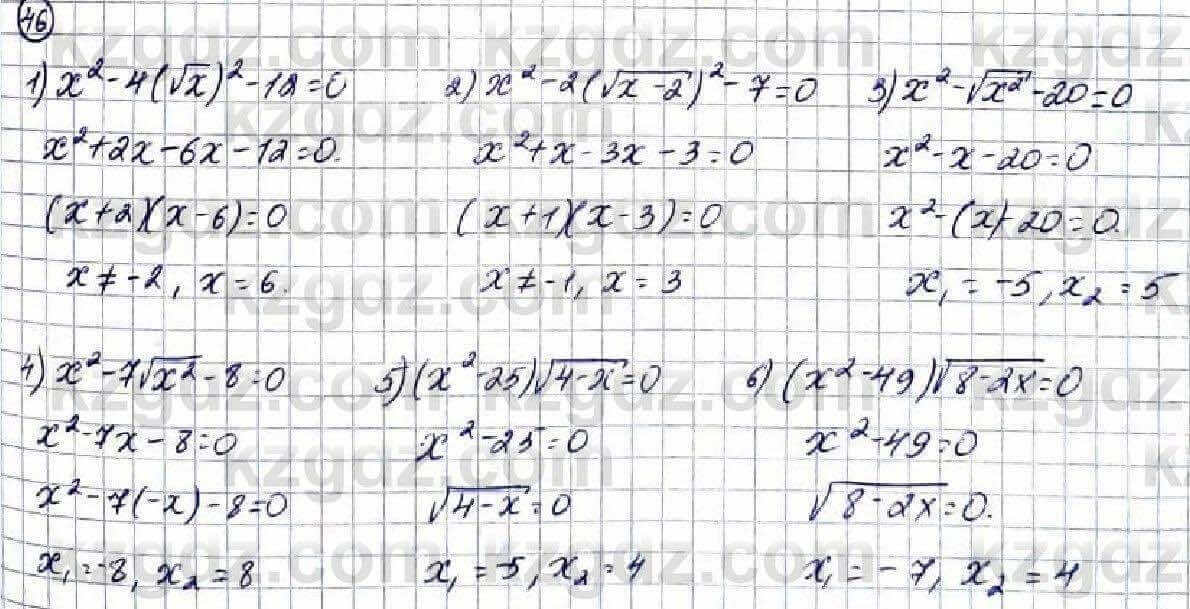 46
1) x² - 4(√x)² - 12 = 0
x² + 2x - 6x - 12 = 0.
(x+2)(x-6) = 0
x ≠ -2, x = 6.
2) x² - 2(√x-2)² - 7 = 0
x² + x - 3x - 3 = 0
(x+1)(x-3) = 0
x ≠ -1, x = 3
3) x² - √x² - 20 = 0
x² - x - 20 = 0
x² - (x) - 20 = 0.
x₁ = -5, x₂ = 5
4) x² - 7√x² - 8 = 0
x² - 7x - 8 = 0
x² - 7(-x) - 8 = 0
x₁ = -8, x₂ = 8
5) (x² - 25)√4-x = 0
x² - 25 = 0
√4-x = 0
x₁ = -5, x₂ = 4
6) (x² - 49)√8-2x = 0
x² - 49 = 0
√8-2x = 0.
x₁ = -7, x₂ = 4
kzgdz.com